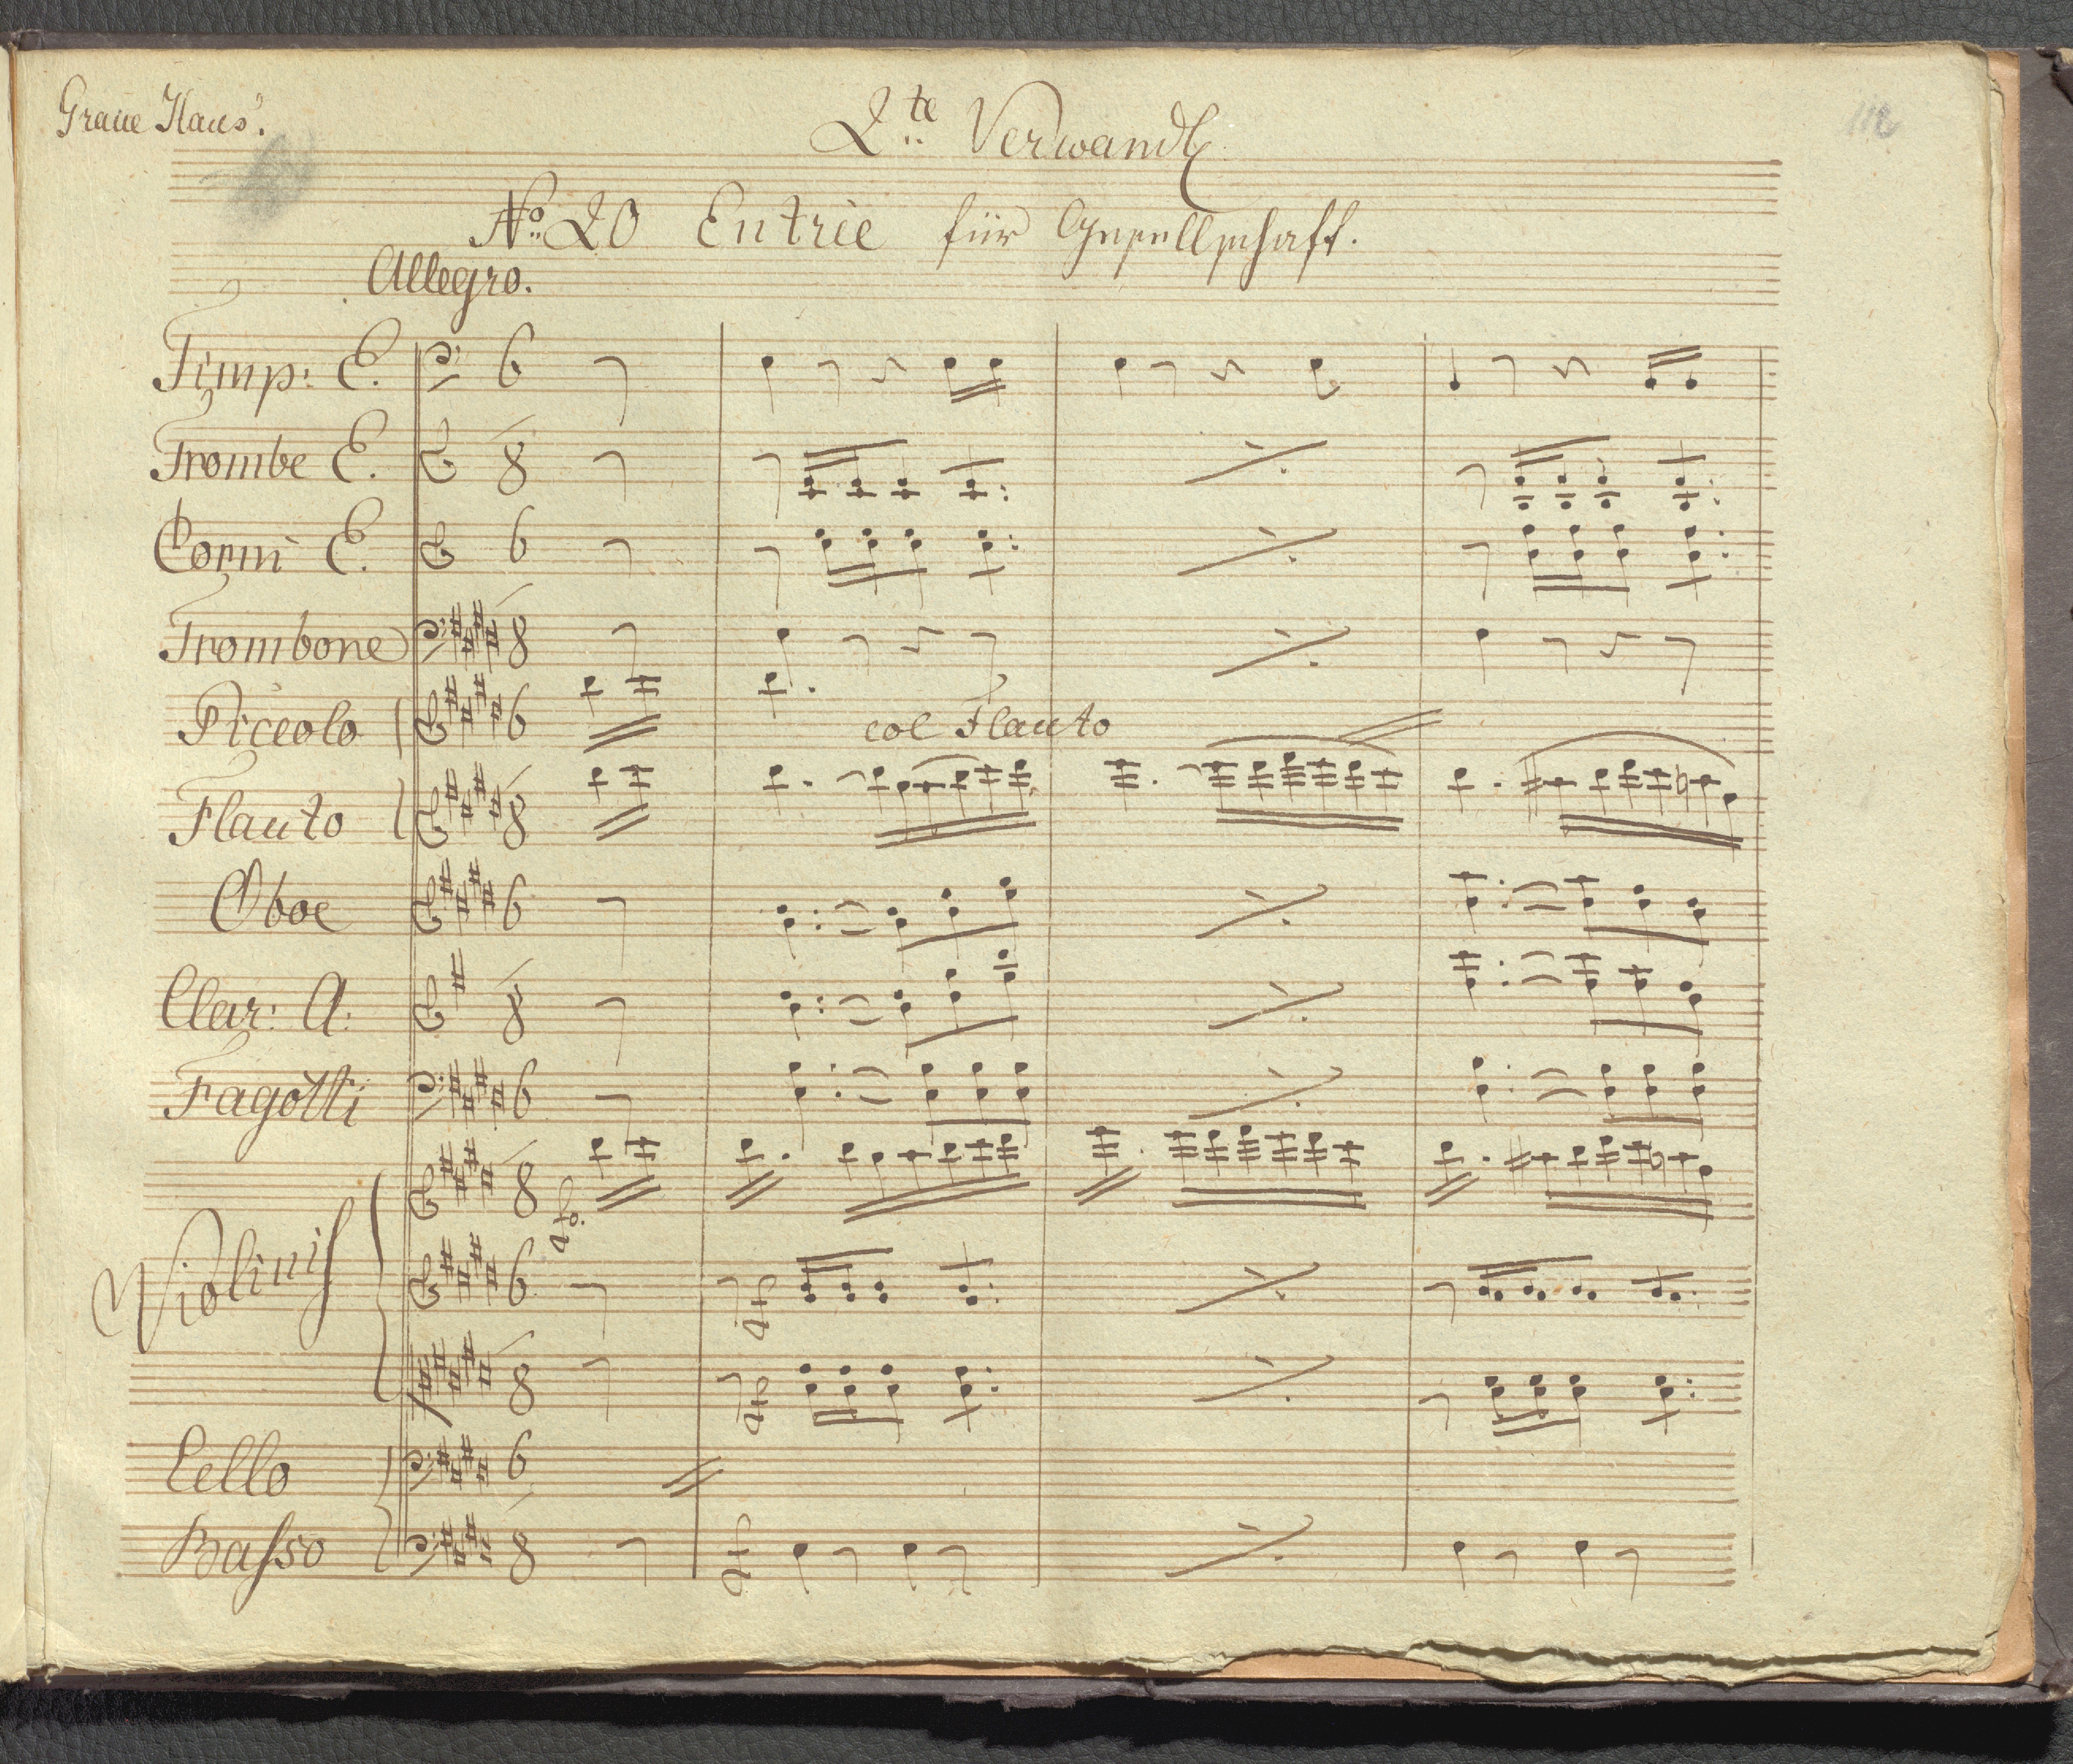 Graue Haus.
2te Verwandl
112
No 20 Entrie für Gesellschaft.
Allegro.
Timp: E. 6
Trombe E. 8
Corni E. 6
Trombone 8
Piccolo 6 col Flauto
Flauto 8
Oboe 6
Clar: A: 8
Fagotti 6
8
Violinis 6
8
Cello 6
Basso 8